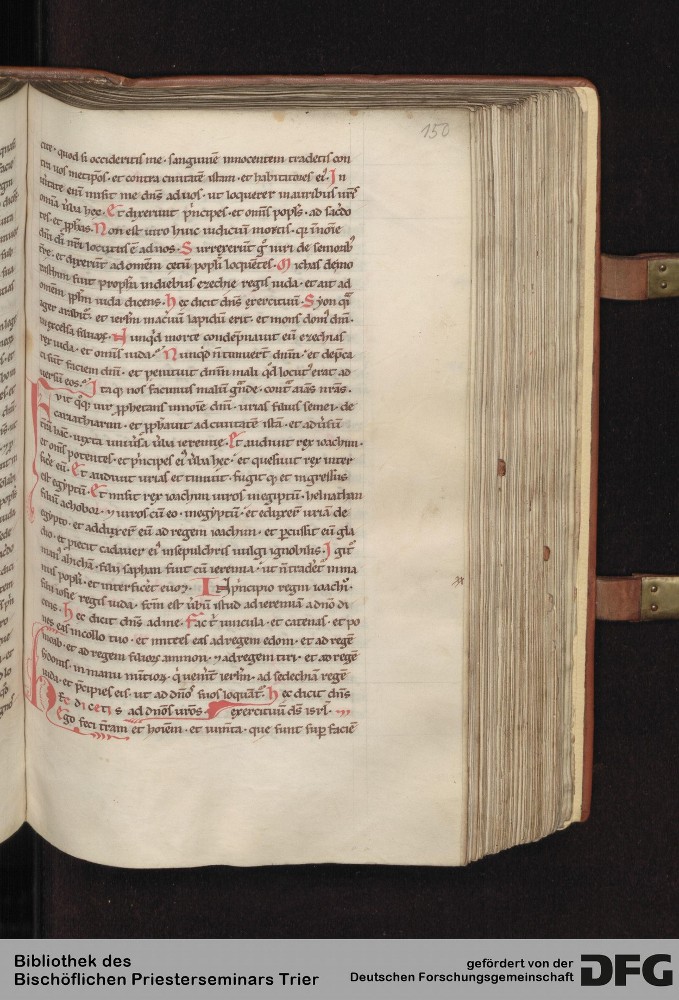 150
cite· quod si occideritis me· sanguinem innocentem tradetis con
tra vos metipsos· et contra civitatem istam· et habitatores ei᾿· In
omnia verba hec· Et dixerunt principes· et omnis popls· ad sacdo
Non est viro huic iudicium mortis· qi in noie
dni di nri locutus e ad nos· Surrexerunt g viri de seniorib
tre· et dixerunt ad omem cetum popli loquentes· Michas de mo
rasthim fuit propheta in diebus ezechie regis iuda· et ait ad
omem pplm iuda dicens· hec dicit dns exercituum· Syon qi
ager arabit· et ierlm in acervum lapidum erit· et mons dom dni·
in excelsa silvar· Nunqd morte condepnavit eum ezechias
rex iuda· et omnis iuda· Nunqd n timuert dnm· et depca
ti sunt faciem dni· et penituit dnm mali qd locut erat ad
versum eos· Itaq nos facimus malu gnde· cont aias nras·
Fuit qq vir pphetans in noie dni· urias filius semei· de
cariathiarim· et pphavit ad civitate ista· et ad vsu
tra hac· iuxta univsa vba ieremie· Et audivit rex ioachim·
et oms potentes· et pncipes ei vba hec· et quesivit rex inter
fice eu· Et audivit urias et timuit· fugit q et ingressus
est egyptu· Et misit rex ioachim viros in egiptum· helnathan
filiu achobor· 7 viros cu eo· in egyptu· et eduxer uria de
egypto· et adduxer eu ad regem ioachim· et pcussit eu gla
dio· et piecit cadaver ei in sepulchris vulgi ignobilis· Igit
man ahicha· filii saphan fuit cu ieremia· ut n tradet in ma
nus popli· et interficet eu· In pncipio regni ioachi·
filii iosie regis iuda· fcm est vbu istud ad ieremia a dno di
cens· hec dicit dns ad me· Fac t vincula· et catenas· et po
nes eas in collo tuo· et mittes eas ad regem edom· et ad rege
moab· et ad regem filior ammon· 7 ad regem tiri· et ad rege
sidonis· in manu nutior· q venert ierlm· ad sedechia rege
iuda· et pcipies eis· ut ad dnos suos loquatr· hec dicit dns
exercituu ds isrl·
Hec dicetis ad dnos vros·
Ego feci tram et hoiem· et iumta· que sunt sup facie
Bibliothek des
Bischöflichen Priesterseminars Trier
gefördert von der
Deutschen Forschungsgemeinschaft
DFG